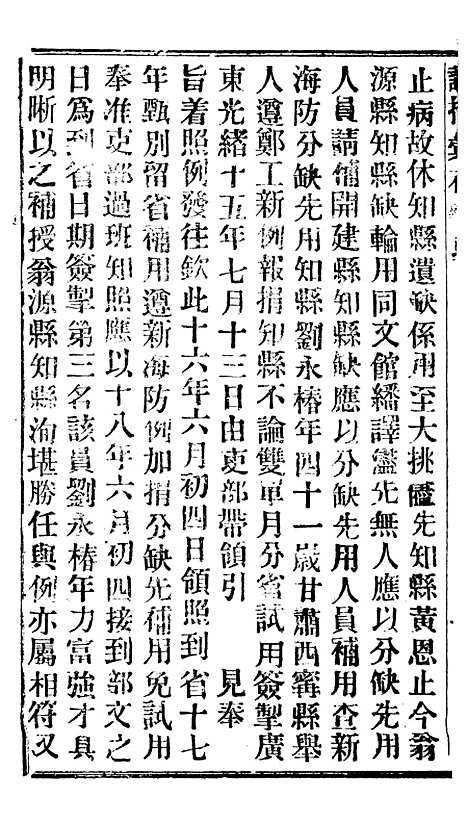 止病故休知縣遺缺係用至大挑儘先知縣黃恩止今翁
源縣知縣缺輪用同文館繙譯儘先無人應以分缺先用
人員請補開建縣知縣缺應以分缺先用人員補用查新
海防分缺先用知縣劉永椿年四十一歲甘肅西寧縣舉
人遵鄭工新例報捐知縣不論雙單月分省試用簽掣廣
東光緒十五年七月十三日由吏部帶領引見奉
旨着照例發往欽此十六年六月初四日領照到省十七
年甄別留省補用遵新海防例加捐分缺先補用免試用
奉准吏部過班知照應以十八年六月初四接到部文之
日爲到省日期簽掣第三名該員劉永椿年力富強才具
明晰以之補授翁源縣知縣洵堪勝任與例亦屬相符又